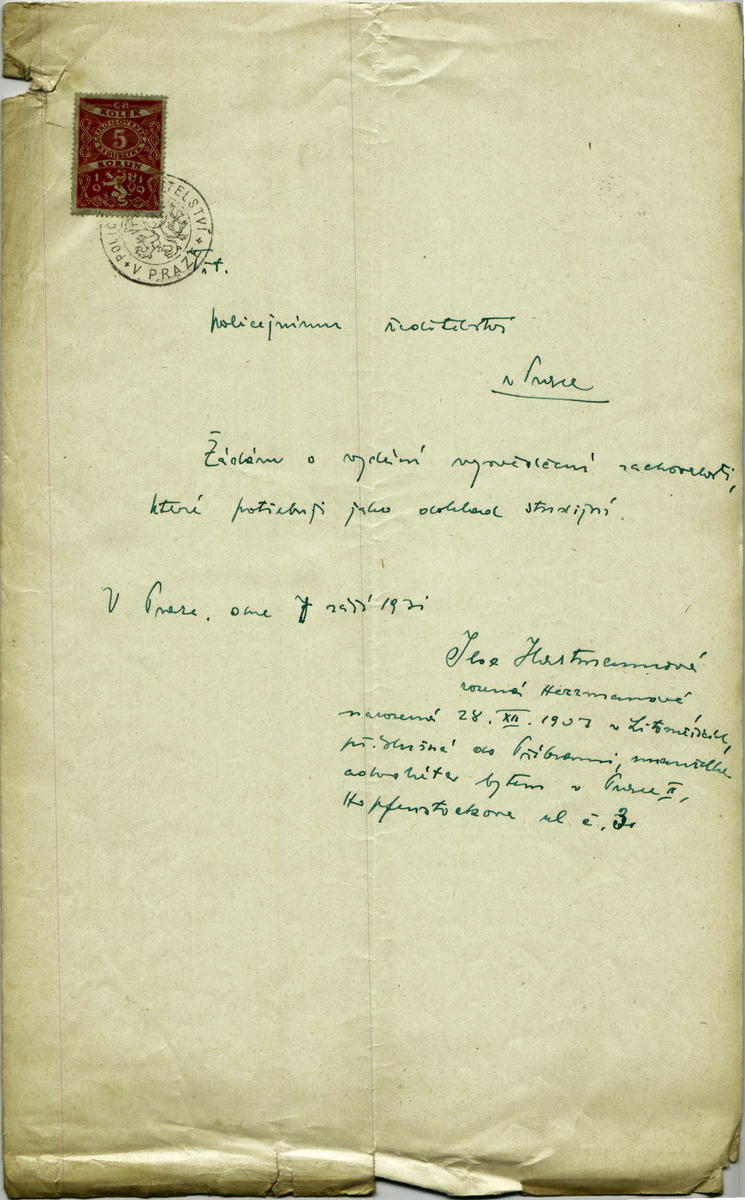 KOLEK
ČESKOSLOVENSKÁ
REPUBLIKA
5
KORUN
1919
POLIC ITELSTVÍ
V PRAZE
Vt.
policejnímu ředitelství
v Praze
Žádám o vydání vysvědčení zachovalosti,
které potřebuji jako doklad studijní.
V Praze, dne 7 září 1931
Ilsa Hartmannová
rozená Herrmanová
narozená 28. XII. 1907 v Litoměřicích,
příslušná do Příbrami, manželka
advokáta bytem v Praze II,
Hopfenstockova ul č. 3.